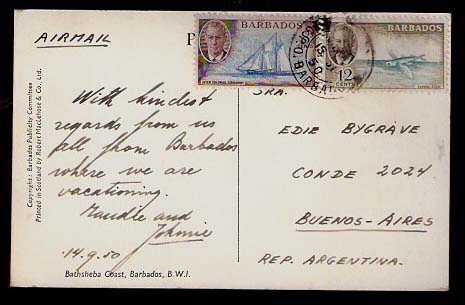 AIRMAIL
P
BARBADOS
INTER COLONIAL SCHOONER
G.P.O. BARBADOS
BARBADOS
12
CENTS
FLYING FISH
Copyright: Barbados Publicity Committee
Printed in Scotland by Robert MacLehose & Co., Ltd.
With kindest
regards from us
all from Barbados
where we are
vacationing.
Maudie and
Johnnie
14.9.50
Bathsheba Coast, Barbados, B.W.I.
SRA.
EDIE BYGRAVE
CONDE 2024
BUENOS-AIRES
REP. ARGENTINA.